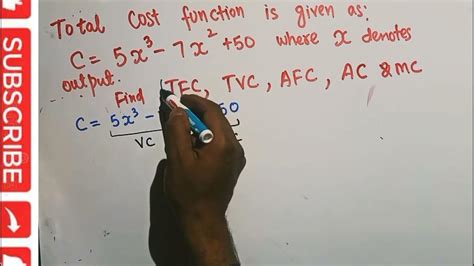 SUBSCRIBE
Total Cost function is given as:
C = 5x³ - 7x² + 50 where x denotes
output.
Find TFC, TVC, AFC, AC & MC
C = 5x³ - 50
VC
SUBSCRIBE